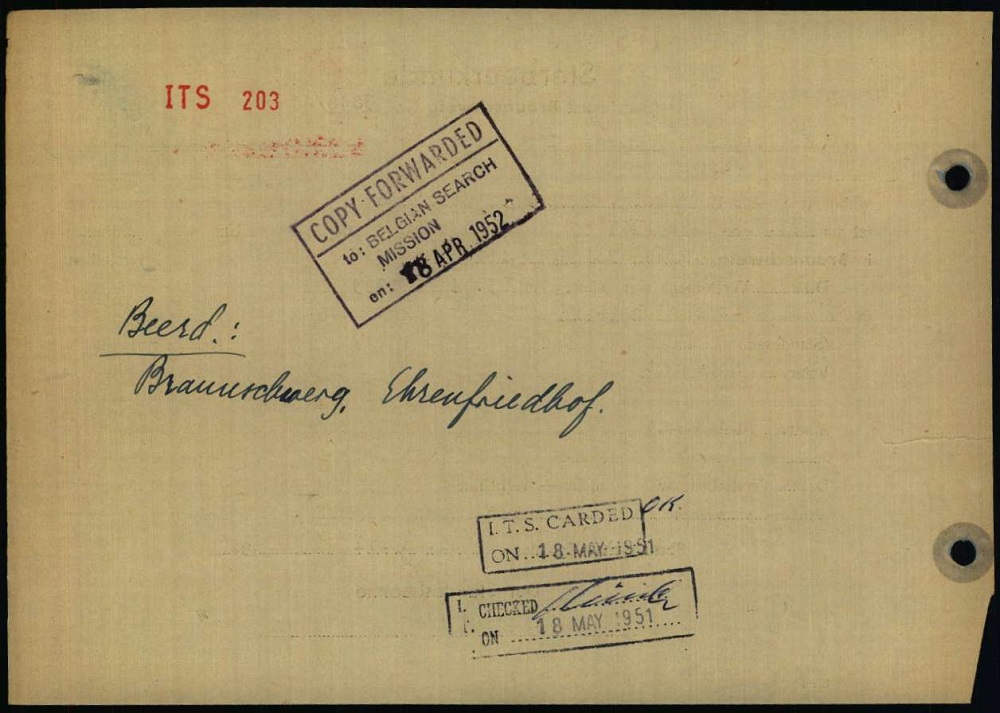 ITS 203
COPY FORWARDED
to: BELGIAN SEARCH
MISSION
on: 18 APR 1952
Beerd.:
Braunschweig, Ehrenfriedhof.
I.T.S. CARDED OK.
ON 18 MAY 1951
I. CHECKED
ON 18 MAY 1951